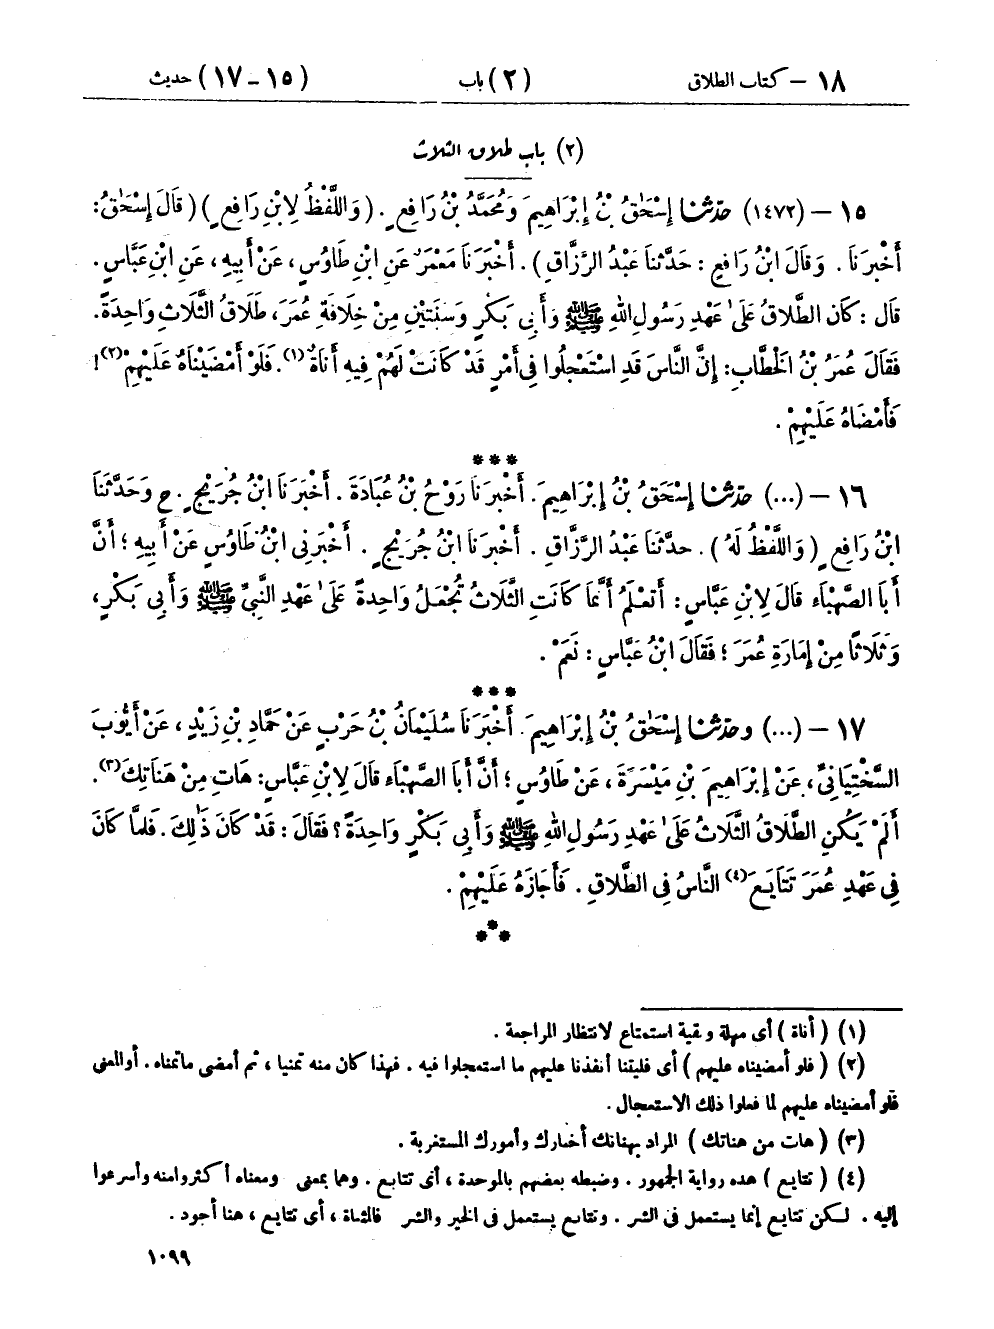 ١٨ – كتاب الطلاق (٢) باب (١٥ – ١٧) حديث
(٢) باب طلاق الثلاث
١٥ – (١٤٧٢) حدّثنا إِسْحَٰقُ بْنُ إِبْرَاهِيمَ وَمُحَمَّدُ بْنُ رَافِعٍ. (وَاللَّفْظُ لِابْنِ رَافِعٍ) (قَالَ إِسْحَٰقُ:
أَخْبَرَنَا. وَقَالَ ابْنُ رَافِعٍ: حَدَّثَنَا عَبْدُ الرَّزَّاقِ). أَخْبَرَنَا مَعْمَرٌ عَنِ ابْنِ طَاوُسٍ، عَنْ أَبِيهِ، عَنِ ابْنِ عَبَّاسٍ.
قَالَ: كَانَ الطَّلَاقُ عَلَىٰ عَهْدِ رَسُولِ اللهِ ﷺ وَأَبِي بَكْرٍ وَسَنَتَيْنِ مِنْ خِلَافَةِ عُمَرَ، طَلَاقُ الثَّلَاثِ وَاحِدَةً.
فَقَالَ عُمَرُ بْنُ الْخَطَّابِ: إِنَّ النَّاسَ قَدِ اسْتَعْجَلُوا فِي أَمْرٍ قَدْ كَانَتْ لَهُمْ فِيهِ أَنَاةٌ(١). فَلَوْ أَمْضَيْنَاهُ عَلَيْهِمْ(٢)!
فَأَمْضَاهُ عَلَيْهِمْ.
***
١٦ – (...) حدّثنا إِسْحَٰقُ بْنُ إِبْرَاهِيمَ. أَخْبَرَنَا رَوْحُ بْنُ عُبَادَةَ. أَخْبَرَنَا ابْنُ جُرَيْجٍ. ح وَحَدَّثَنَا
ابْنُ رَافِعٍ (وَاللَّفْظُ لَهُ). حَدَّثَنَا عَبْدُ الرَّزَّاقِ. أَخْبَرَنَا ابْنُ جُرَيْجٍ. أَخْبَرَنِي ابْنُ طَاوُسٍ عَنْ أَبِيهِ؛ أَنَّ
أَبَا الصَّهْبَاءِ قَالَ لِابْنِ عَبَّاسٍ: أَتَعْلَمُ أَنَّمَا كَانَتِ الثَّلَاثُ تُجْعَلُ وَاحِدَةً عَلَىٰ عَهْدِ النَّبِيِّ ﷺ وَأَبِي بَكْرٍ،
وَثَلَاثًا مِنْ إِمَارَةِ عُمَرَ؟ فَقَالَ ابْنُ عَبَّاسٍ: نَعَمْ.
***
١٧ – (...) وحدّثنا إِسْحَٰقُ بْنُ إِبْرَاهِيمَ. أَخْبَرَنَا سُلَيْمَانُ بْنُ حَرْبٍ عَنْ حَمَّادِ بْنِ زَيْدٍ، عَنْ أَيُّوبَ
السَّخْتِيَانِيِّ، عَنْ إِبْرَاهِيمَ بْنِ مَيْسَرَةَ، عَنْ طَاوُسٍ؛ أَنَّ أَبَا الصَّهْبَاءِ قَالَ لِابْنِ عَبَّاسٍ: هَاتِ مِنْ هَنَاتِكَ(٣).
أَلَمْ يَكُنِ الطَّلَاقُ الثَّلَاثُ عَلَىٰ عَهْدِ رَسُولِ اللهِ ﷺ وَأَبِي بَكْرٍ وَاحِدَةً؟ فَقَالَ: قَدْ كَانَ ذَٰلِكَ. فَلَمَّا كَانَ
فِي عَهْدِ عُمَرَ تَتَايَعَ(٤) النَّاسُ فِي الطَّلَاقِ. فَأَجَازَهُ عَلَيْهِمْ.
***
(١) (أناة) أى مهلة وبقية استمتاع لانتظار المراجعة.
(٢) (فلو أمضيناه عليهم) أى فليتنا أنفذنا عليهم ما استعجلوا فيه. فهذا كان منه تمنيا، ثم أمضى ماتمناه. أوالمعنى
فلو أمضيناه عليهم لما فعلوا ذلك الاستعجال.
(٣) (هات من هناتك) المراد بهناتك أخبارك وأمورك المستغربة.
(٤) (تتايع) هذه رواية الجمهور. وضبطه بعضهم بالموحدة، أى تتابع. وهما بمعنى ومعناه أكثروامنه وأسرعوا
إليه. لكن تتايع إنما يستعمل فى الشر. وتتابع يستعمل فى الخير والشر فالمثناة، أى تتايع، هنا أجود.
١٠٩٩